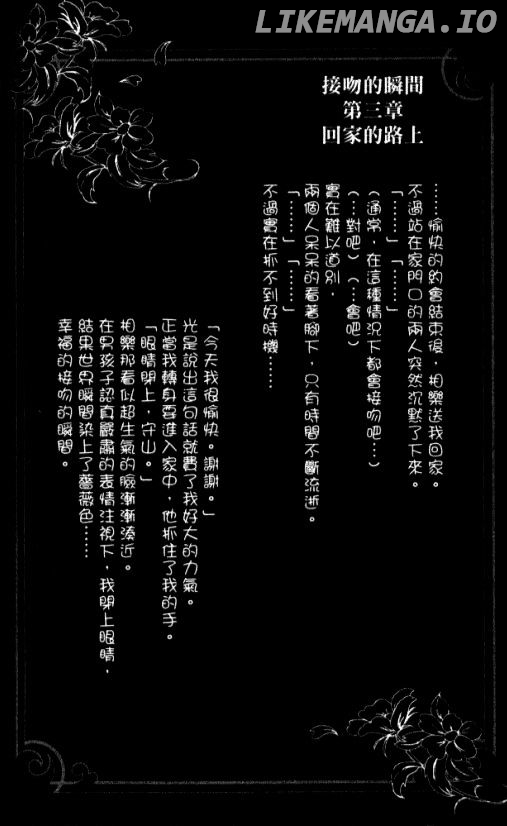 LIKEMANGA.IO
接吻的瞬間
第三章
回家的路上
……愉快的約會結束後，相樂送我回家。
不過站在家門口的兩人突然沉默了下來。
「……」「……」
（通常，在這種情況下都會接吻吧…）
（…對吧）（…會吧）
實在難以道別，
兩個人呆呆的看著腳下，只有時間不斷流逝。
「……」「……」
不過實在抓不到好時機……
「今天我很愉快。謝謝。」
光是說出這句話就費了我好大的力氣。
正當我轉身要進入家中，他抓住了我的手。
「眼睛閉上，守山。」
相樂那看似超生氣的臉漸漸湊近。
在男孩子認真嚴肅的表情注視下，我閉上眼睛，
結果世界瞬間染上了薔薇色……
幸福的接吻的瞬間。